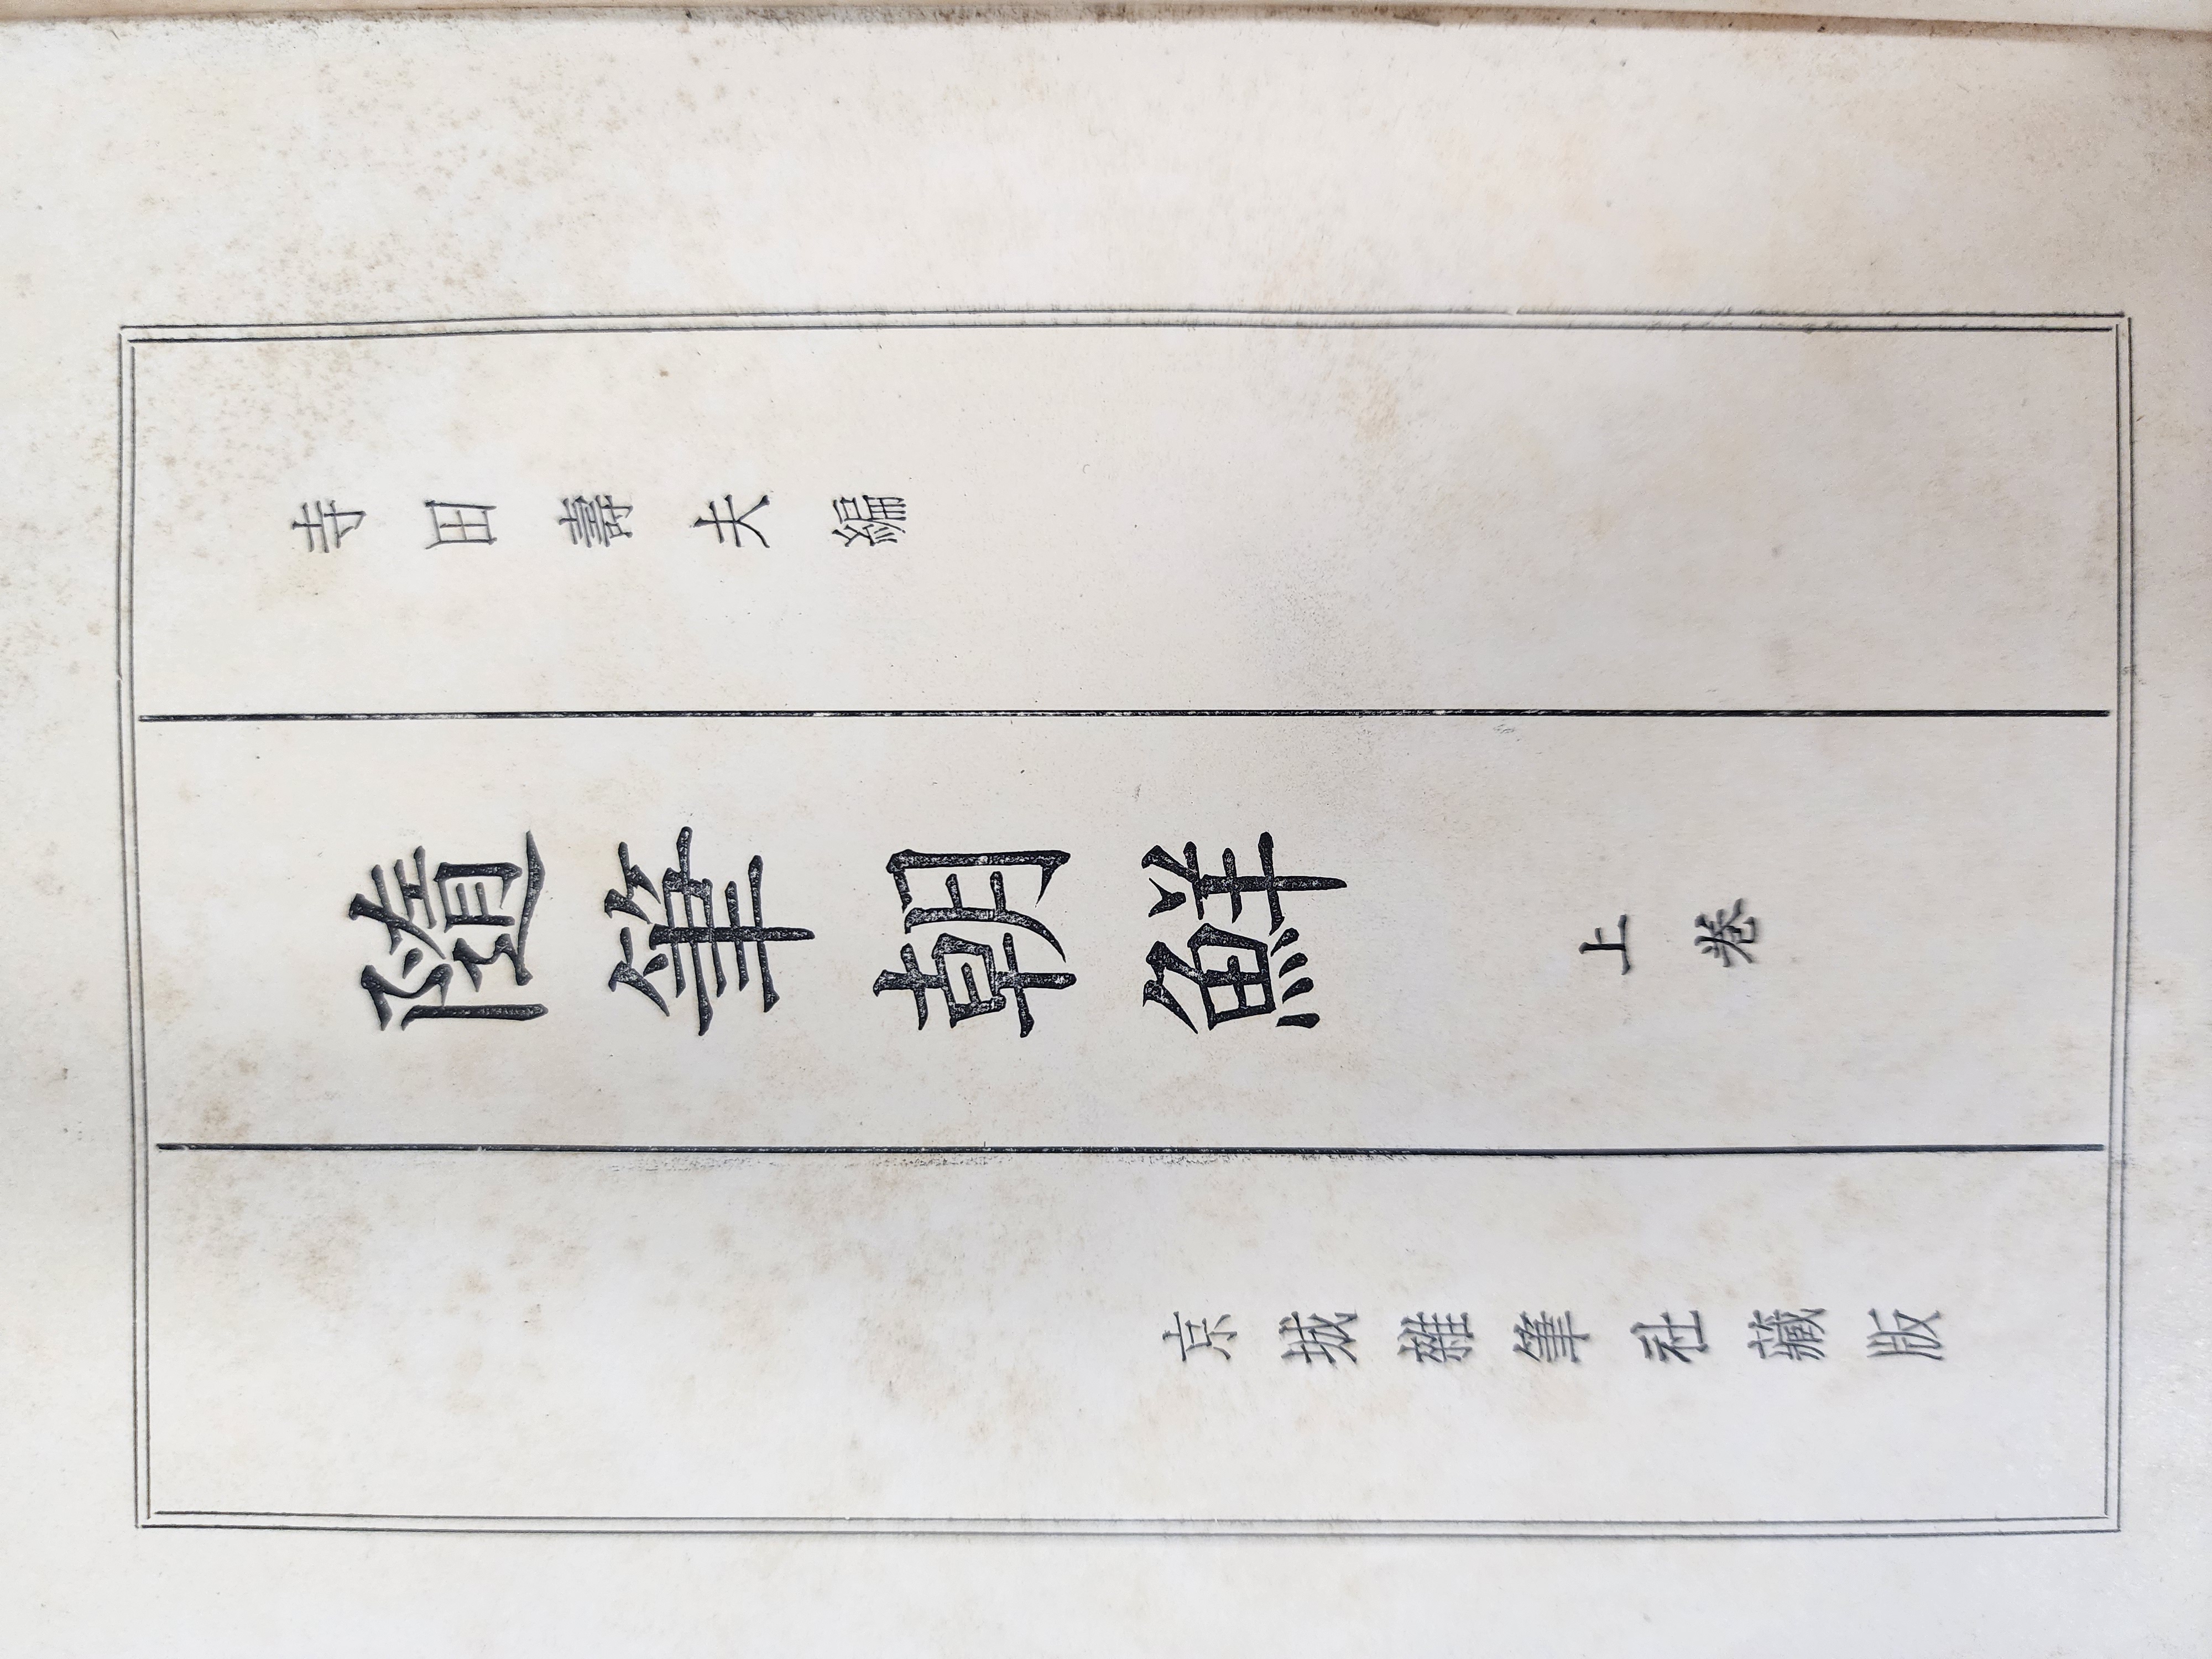 寺田壽夫編
隨筆朝鮮 上卷
京城雜筆社藏版